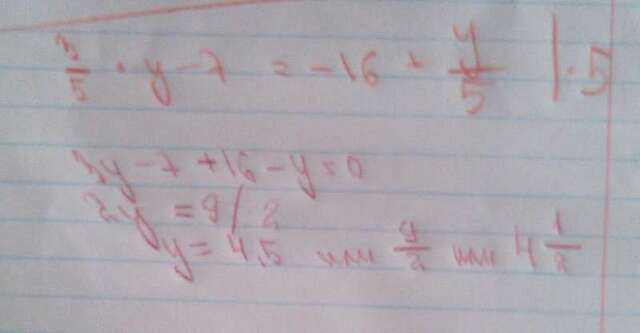 3/5 · y - 7 = -16 + y/5 | · 5
3y - 7 + 16 - y = 0
2y = 9 / 2
y = 4,5 или 9/2 или 4 1/2